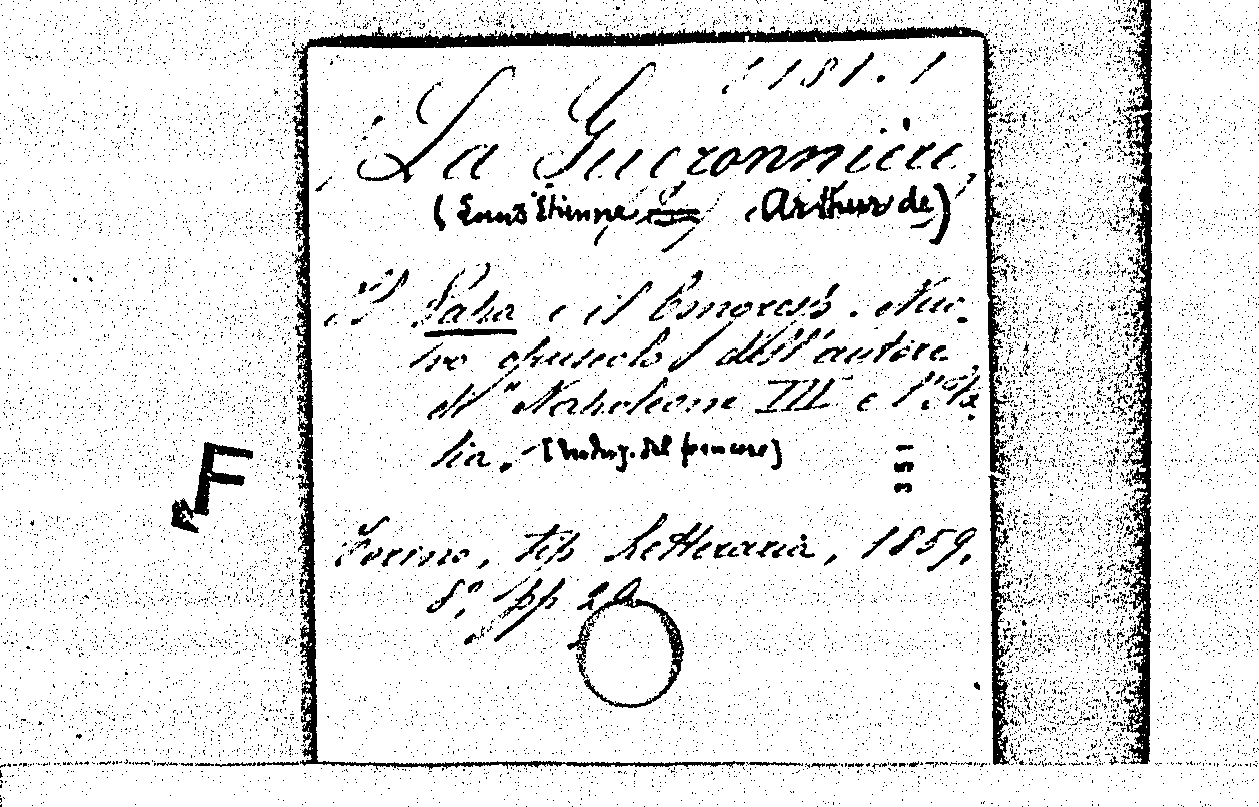 1181.1
La Gueronnière
(Louis Étienne Arthur de)
Il Papa e il Congresso. Nuo-
vo opuscolo dell'autore
di "Napoleone III e l'Ita-
lia. [Traduz. del francese]
351
Torino, tip Letteraria, 1859,
8º, pp 20
F